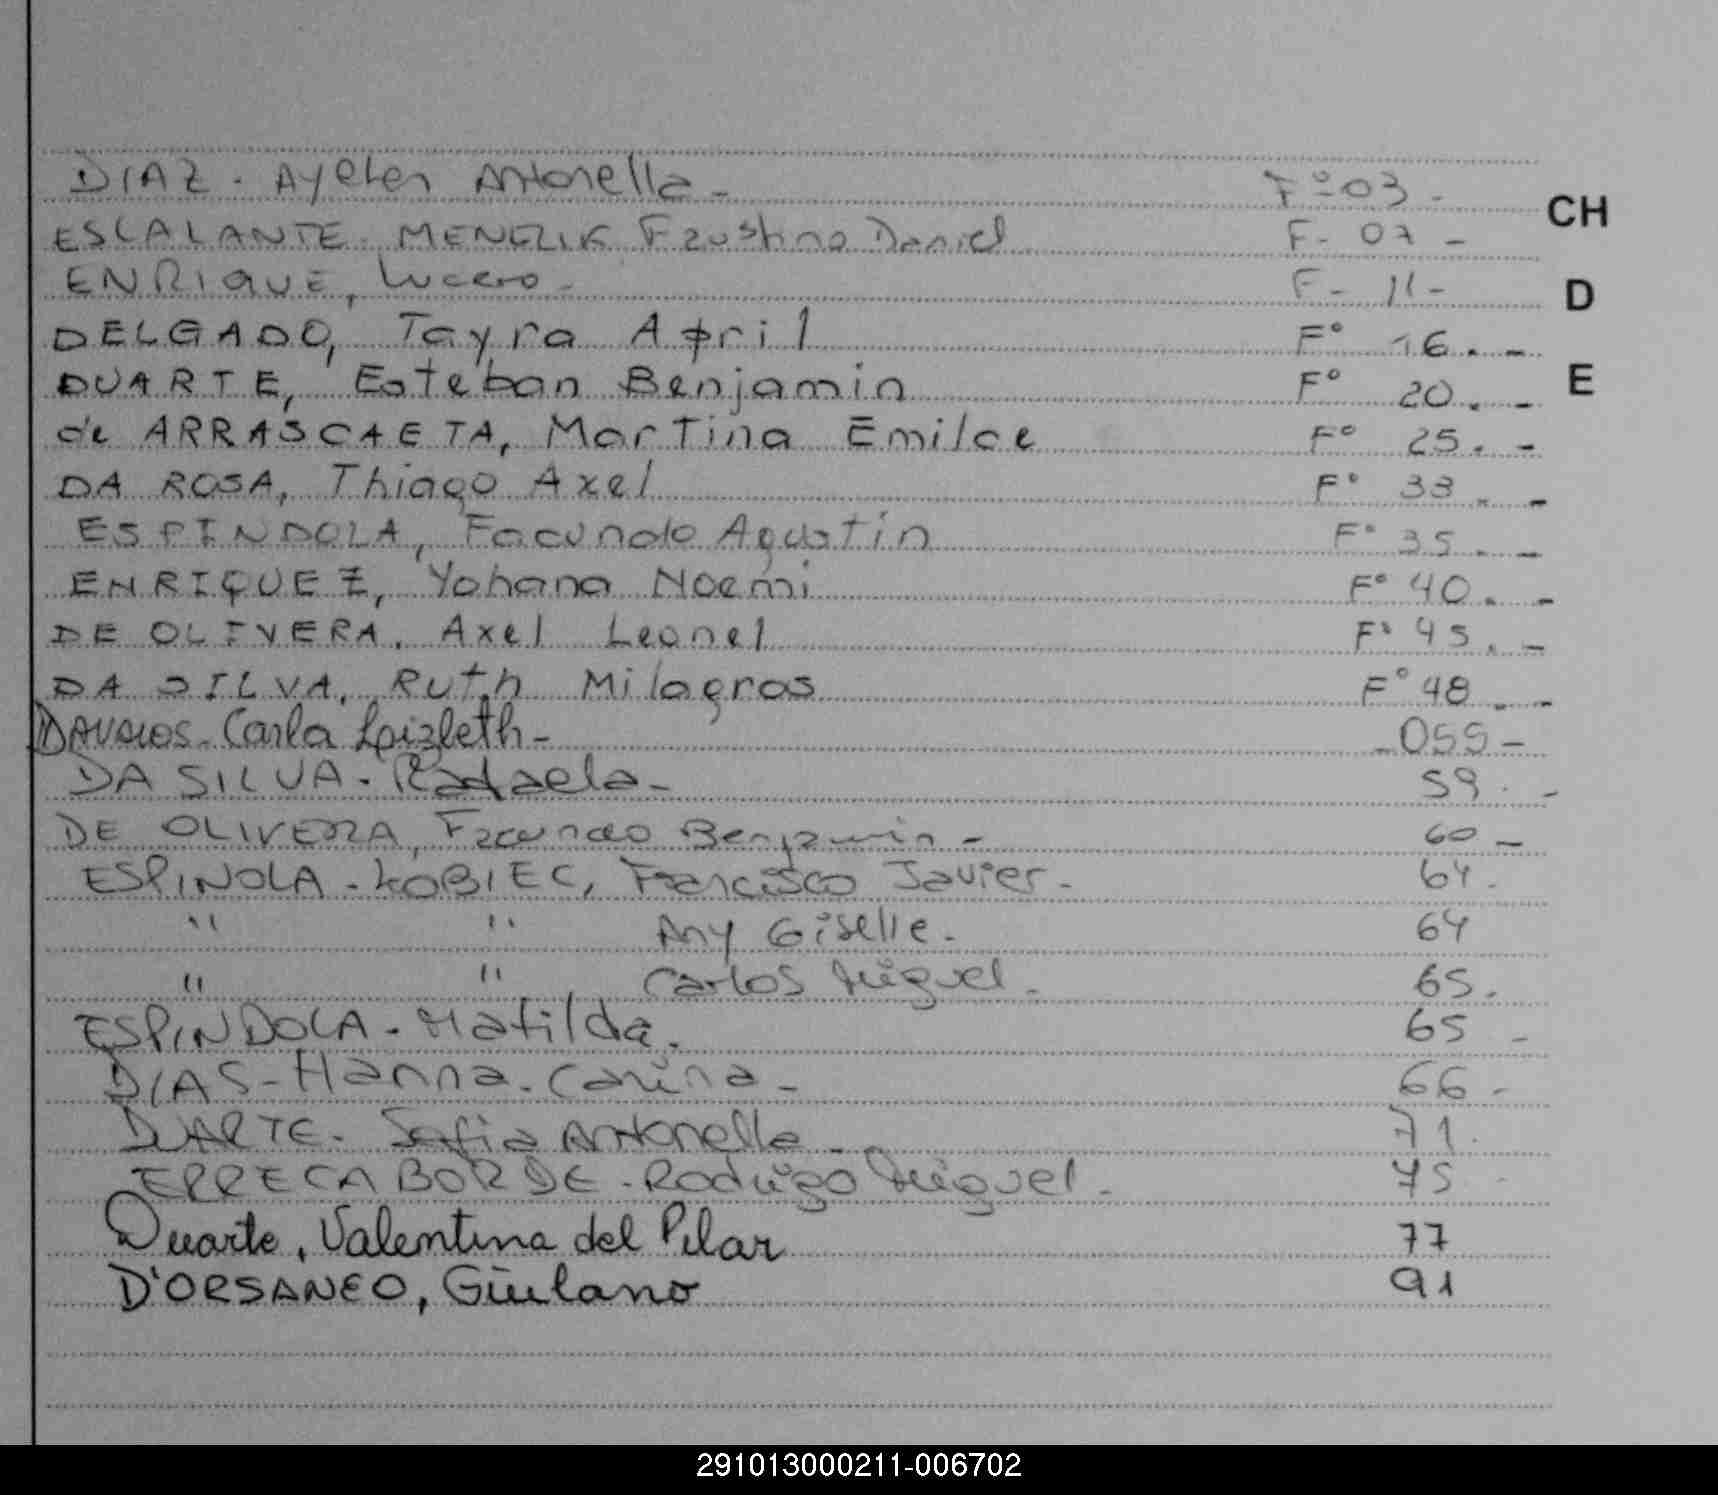 DIAZ. Ayelen Antonella - Fº 03 -
ESCALANTE. MENCZIK Faustino Daniel F- 07 -
ENRIQUE, Lucero - F- 11 -
DELGADO, Tayra April F° 16. -
DUARTE, Esteban Benjamin F° 20. -
de ARRASCAETA, Martina Emilce F° 25. -
DA ROSA, Thiago Axel F° 33. -
ESPINDOLA, Facundo Agustin F° 35. -
ENRIQUEZ, Yohana Noemi F° 40. -
DE OLIVERA, Axel Leonel F° 45. -
DA SILVA, Ruth Milagros F° 48. -
Carla Lizbeth - 055 -
DA SILVA. Rafaela - 59. -
DE OLIVERA, Facundo Benjamin - 60 -
ESPINOLA - KOBIEC, Francisco Javier - 64.
" " Any Giselle. 64
" " Carlos Miguel. 65.
ESPINDOLA - Matilda. 65 -
DIAS - Hanna. Carina - 66 -
DUARTE - Sofia Antonella - 71.
ERRECABORDE - Rodrigo Miguel. 75 -
Duarte, Valentina del Pilar 77
D'ORSANEO, Giulano 91
CH
D
E
291013000211-006702